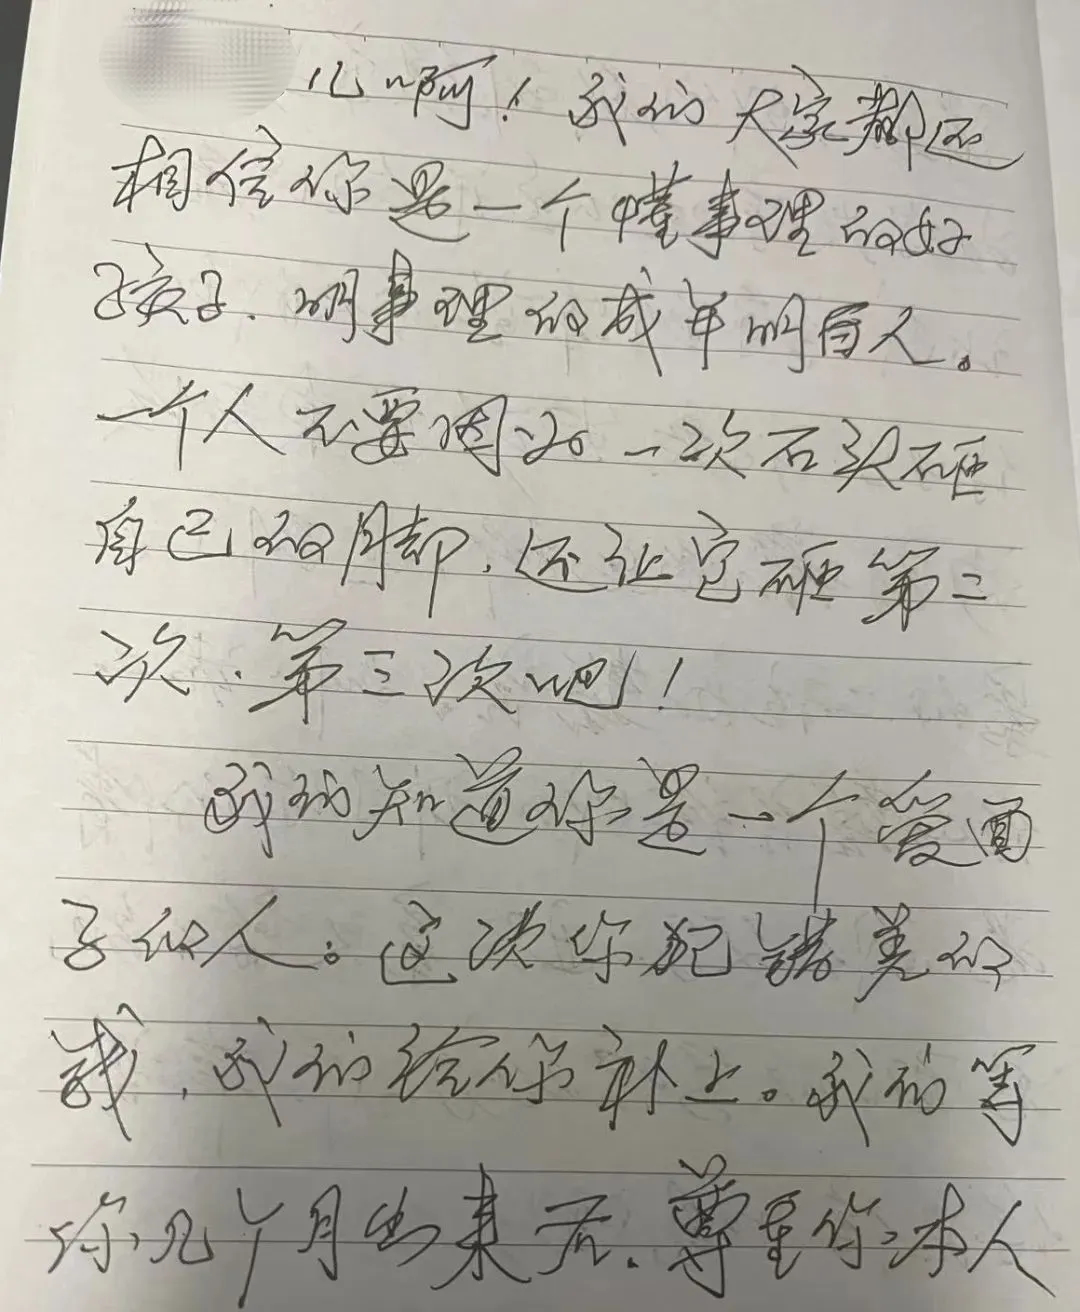 儿啊！我们大家都还
相信你是一个懂事理的好
孩子.明事理的成年明白人。
一个人不要因为一次石头砸
自己的脚,还让它砸第二
次.第三次吧！
我们知道你是一个爱面
子的人。这次你犯错差的
钱,我们给你补上。我们等
你几个月出来后.尊重你本人